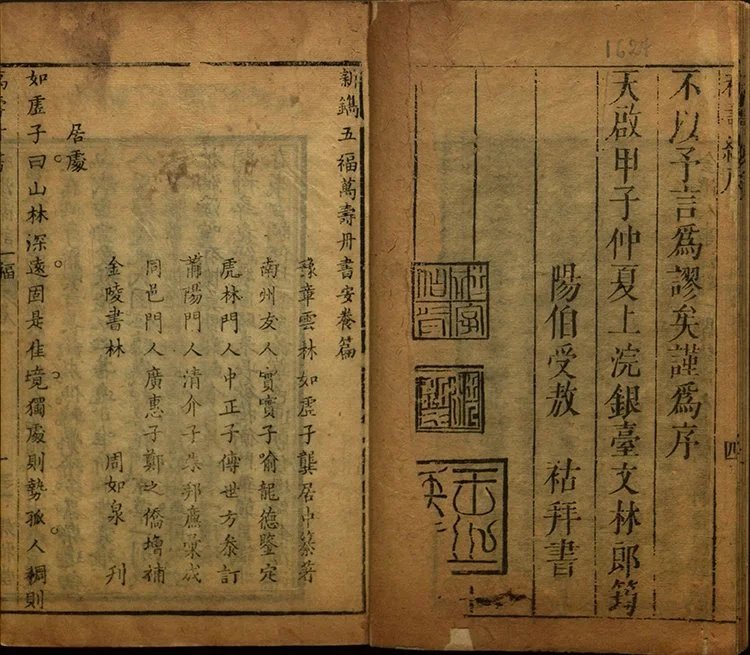 1624
不以予言爲謬矣謹爲序
四
天啟甲子仲夏上浣銀臺文林郎筠
陽伯受敖 祜拜書
新鐫五福萬壽丹書安養篇
豫章雲林如虛子龔居中纂著
南州友人實實子喻龍德鑒定
虎林門人中正子傅世方參訂
莆陽門人清介子朱邦廉彙成
同邑門人廣惠子鄭之僑增補
金陵書林 周如泉 刋
居處
如虛子曰山林深遠固是佳境獨處則勢孤人稠則
福
一